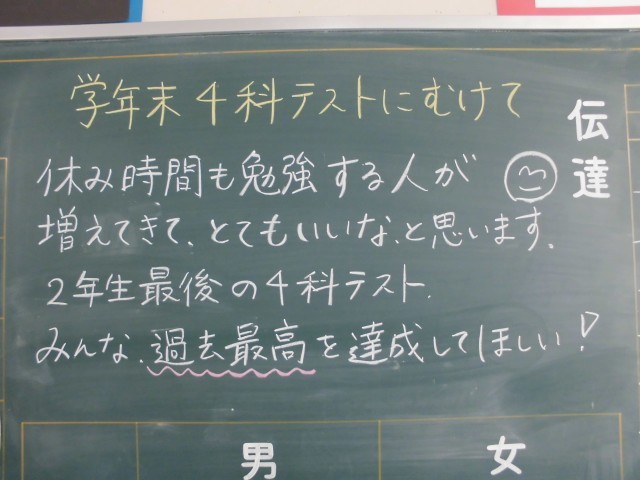 学年末4科テストにむけて
伝達
休み時間も勉強する人が
増えてきて、とてもいいな、と思います。
2年生最後の4科テスト。
みんな、過去最高を達成してほしい!
男
女